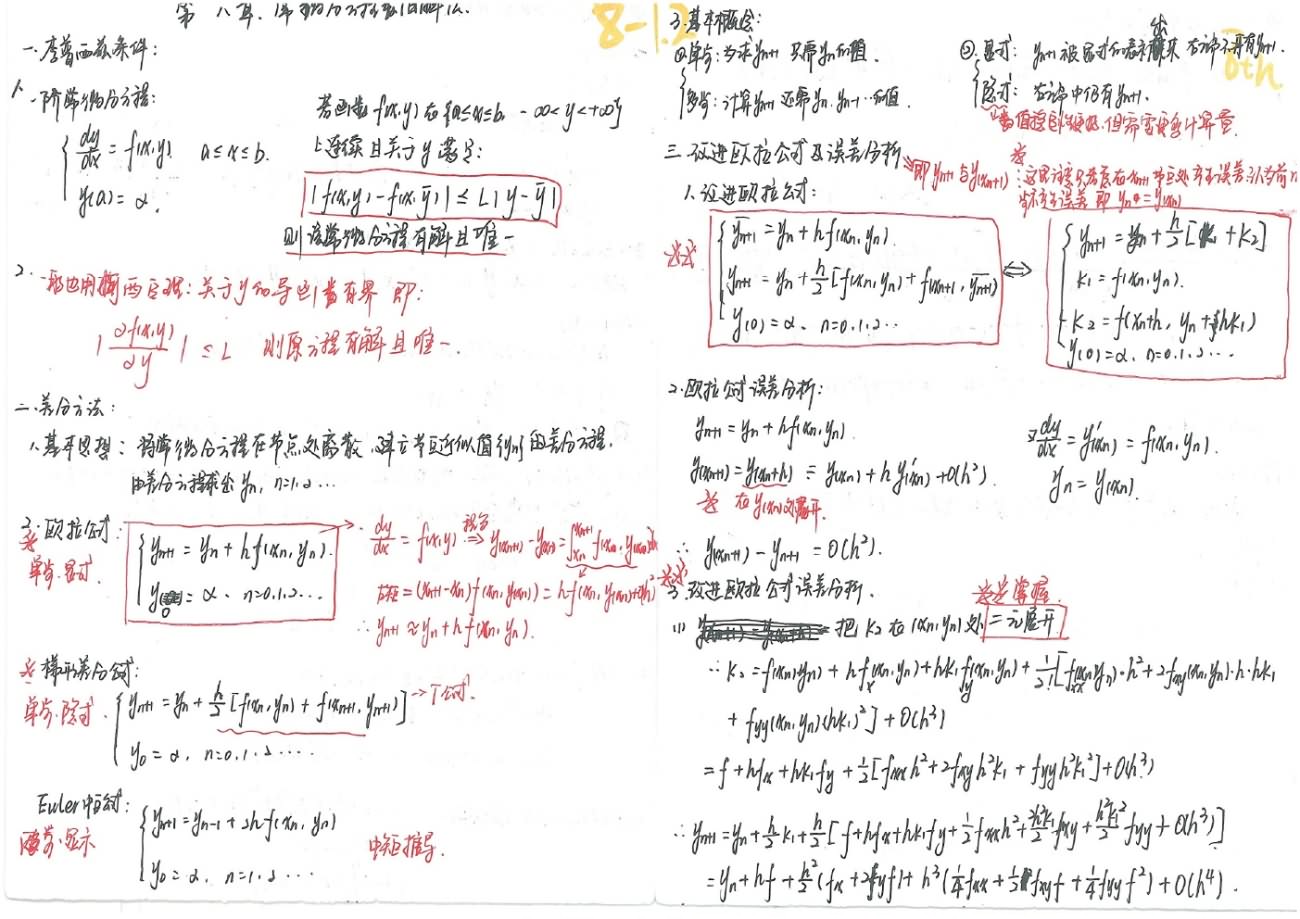 第八章. 常微分方程数值解法.
8-1.2
一.李普西兹条件:
1. 一阶常微分方程:
{ dy/dx = f(x,y) a≤x≤b.
y(a) = α.
若函数 f(x,y) 在 {a≤x≤b, -∞<y<+∞}
上连续且关于y满足:
|f(x,y) - f(x,ȳ)| ≤ L|y-ȳ|
则该常微分方程有解且唯一
2. 关于y的导数有界 即:
|∂f(x,y)/∂y| ≤ L 则原方程有解且唯一
二.差分方法:
1.基本思想: 将常微分方程在节点处离散,建立节点近似值{yn}的差分方程.
由差分方程求出 yn, n=1,2...
2.欧拉公式:
单步.显式.
{ yn+1 = yn + hf(xn,yn).
= α. n=0.1.2...
dy/dx = f(x,y) 积分⇒ y(xn+1) - y(xn) = ∫
= (xn+1-xn) f(xn,y(xn)) = h·f(xn,y(xn))+
∴ yn+1 ≈ yn + h f(xn,yn).
梯形差分公式:
单步.隐式.
{ yn+1 = yn + h/2 [f(xn,yn) + f(xn+1,yn+1)] → T公式.
y0 = α, n=0.1.2....
Euler中点公式:
显示
{ yn+1 = yn-1 + 2hf(xn,yn)
y0 = α. n=1.2...
中矩推导.
3.基本概念:
①单步:当求yn+1 只需yn的值.
多步:计算yn+1 还需yn.yn-1...的值.
②显式: yn+1 被显式的表示出来 右端不再有yn+1.
隐式: 右端中仍有yn+1.
但需 计算量.
三.改进欧拉公式及误差分析
即 yn+1 与 y(xn+1)
误差 即 yn = y(xn)
1.改进欧拉公式:
{ ȳn+1 = yn + hf(xn,yn).
yn+1 = yn + h/2 [f(xn,yn) + f(xn+1, ȳn+1)]
y(0) = α. n=0.1.2...
⇔
{ yn+1 = yn + h/2 [K1 + K2]
K1 = f(xn,yn).
K2 = f(xn+h, yn+hK1)
y(0) = α. n=0.1.2....
2.欧拉公式误差分析:
yn+1 = yn + hf(xn,yn).
又 dy/dx = y'(xn) = f(xn,yn).
y(xn+1) = y(xn+h) = y(xn) + h y'(xn) + O(h²).
yn = y(xn).
在 y(xn)处展开.
∴ y(xn+1) - yn+1 = O(h²).
3.改进欧拉公式误差分析.
掌握
(1) 把 K2 在 (xn,yn) 处 二元展开
∴ K2 = f(xn,yn) + hfx(xn,yn) + hk1fy(xn,yn) + 1/2! [fxx(xn,yn)·h² + 2fxy(xn,yn)·h·hk1
+ fyy(xn,yn)(hk1)²] + O(h³)
= f + hfx + hk1fy + 1/2[fxxh² + 2fxyh²k1 + fyyh²k1²] + O(h³)
∴ yn+1 = yn + h/2 k1 + h/2 [f + hfx + hk1fy + 1/2fxxh² + fxy + h²k1²/2 fyy + O(h³)]
= yn + hf + h²/2 (fx + fyf) + h³(1/4fxx + 1/2fxyf + 1/4fyyf²) + O(h⁴).